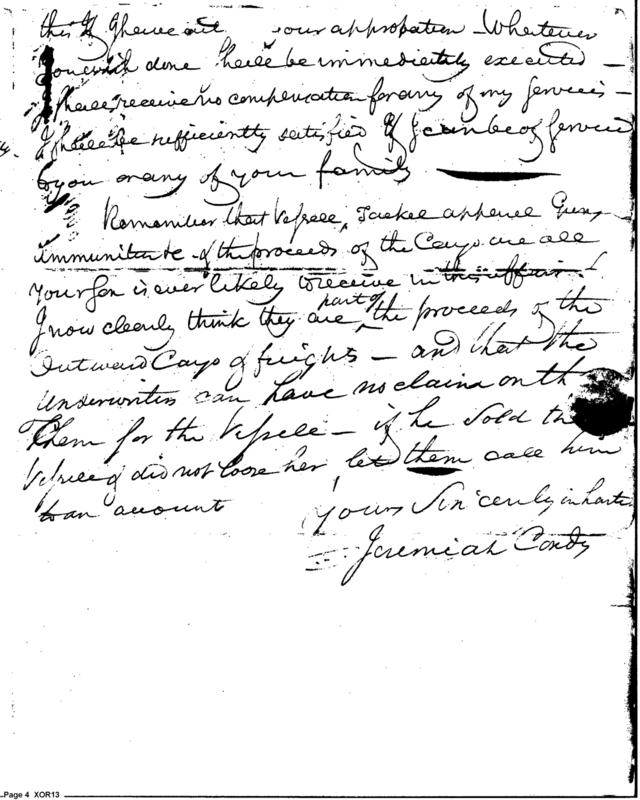 this If I have not your approbation – Whatever
You wish done shall be immediately executed –
I shall receive no compensation for any of my Services –
I shall be sufficiently satisfied If I can be of Service
to you or any of your family
Remember that Vessell, Tackel apperel Guns
ammunition &c of the proceeds of the Cargo are all
Your Son is ever likely to receive in this affair
I now clearly think they are part of the proceeds of the
Outward Cargo & freights – and that the
Underwriters can have no claim on th
Them for the Vessell – if he Sold the
Vessell & did not loose her, let them call him
to an account
Yours Sincerely in haste
Jeremiah Condy
Page 4 XOR13